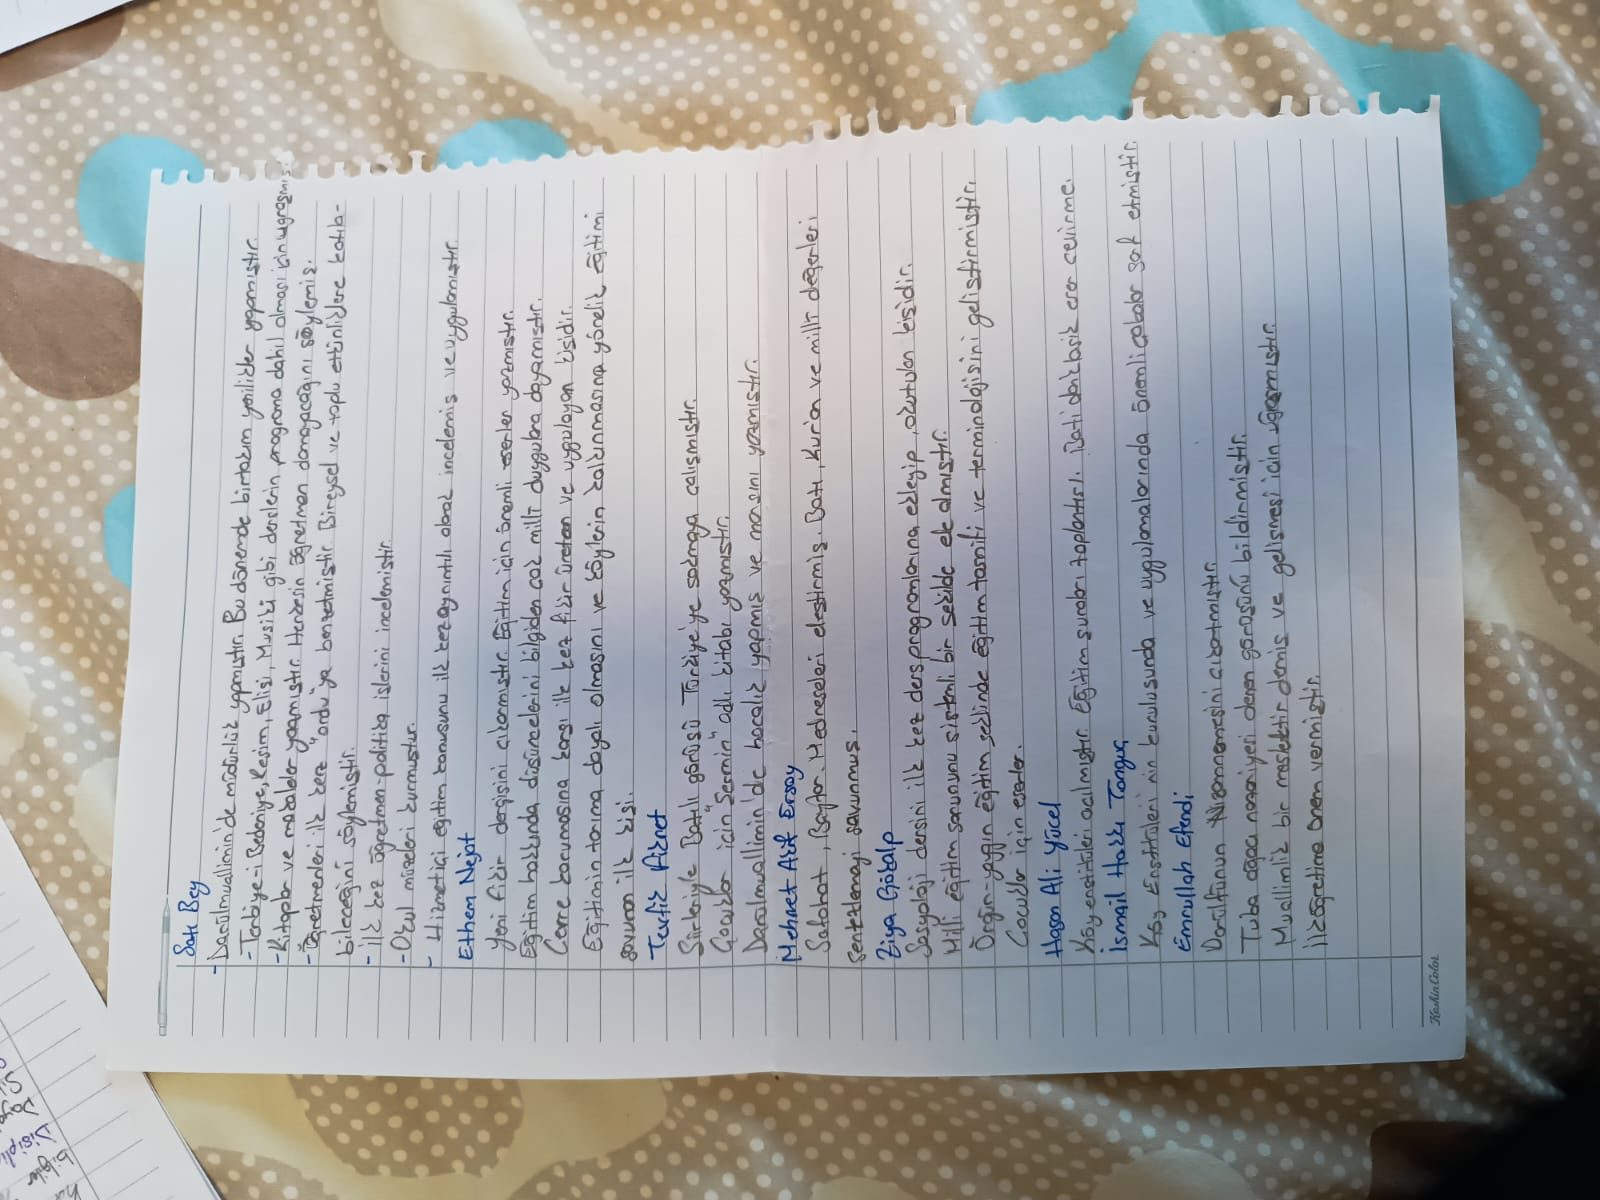 Satı Bey
- Darülmuallimin'de müdürlük yapmıştır. Bu dönemde birtakım yenilikler yapmıştır.
- Terbiye-i Bedeniye, Resim, Elişi, Musiki gibi derslerin programa dahil olması için uğraşmış.
- Kitaplar ve makaleler yazmıştır. Herkesin öğretmen olamayacağını söylemiş.
- Öğretmenleri ilk kere "ordu"ya benzetmiştir. Bireysel ve toplu etkinliklere katıla-
bileceğini söylemiştir.
- ilk kez öğretmen-politika işlerini incelemiştir.
- Okul müzeleri kurmuştur.
- Hizmetiçi eğitim konusunu ilk kez ayrıntılı olarak incelemiş ve uygulamıştır.
Ethem Nejat
Yeni fikir dergisini çıkarmıştır. Eğitim için önemli eserler yazmıştır.
Eğitim hakkında düşüncelerini bilgiden çok milli duygulara dayamıştır.
Cerre karumasına karşı ilk kez fikir üreten ve uygulayan kişidir.
Eğitiminin tarıma dayalı olmasını ve köylerin kalkınmasına yönelik eğitimi
savunan ilk kişi.
Tevfik Fikret
Şiirleriyle Batılı görüşü Türkiye'ye sokmaya çalışmıştır.
Çocuklar için "Şermin" adlı kitabı yazmıştır.
Darülmuallimin'de hocalık yapmış ve marşını yazmıştır.
Mehmet Akif Ersoy
Safahat, Bayfon. Medreseleri eleştirmiş. Batı, Kur'an ve milli değerleri
sentezlemeyi savunmuş.
Ziya Gökalp
Sosyoloji dersini ilk kez ders programlarına ekleyip, okutulan kişidir.
Milli eğitim sorununu sistemli bir şekilde ele almıştır.
Örgün-yaygın eğitim şeklinde eğitim tasnifi ve terminolojisini geliştirmiştir.
Çocuklar için eserler.
Hasan Ali Yücel
Köy enstitüleri açılmıştır. Eğitim şuraları toplantısı. Batı'dan klasik eser çevirme.
İsmail Hakkı Tonguç
Köy Enstitüleri'nin kuruluşunda ve uygulamalarında önemli çabalar sarf etmiştir.
Emrullah Efendi
Darülfünun Nizamnamesini çıkartmıştır.
Tuba ağacı nazariyeri denen görüşünü bildirmiştir.
Muallimlik bir meslektir demiş ve gelişmesi için uğraşmıştır.
İlköğretime önem vermiştir.
KeskinColor